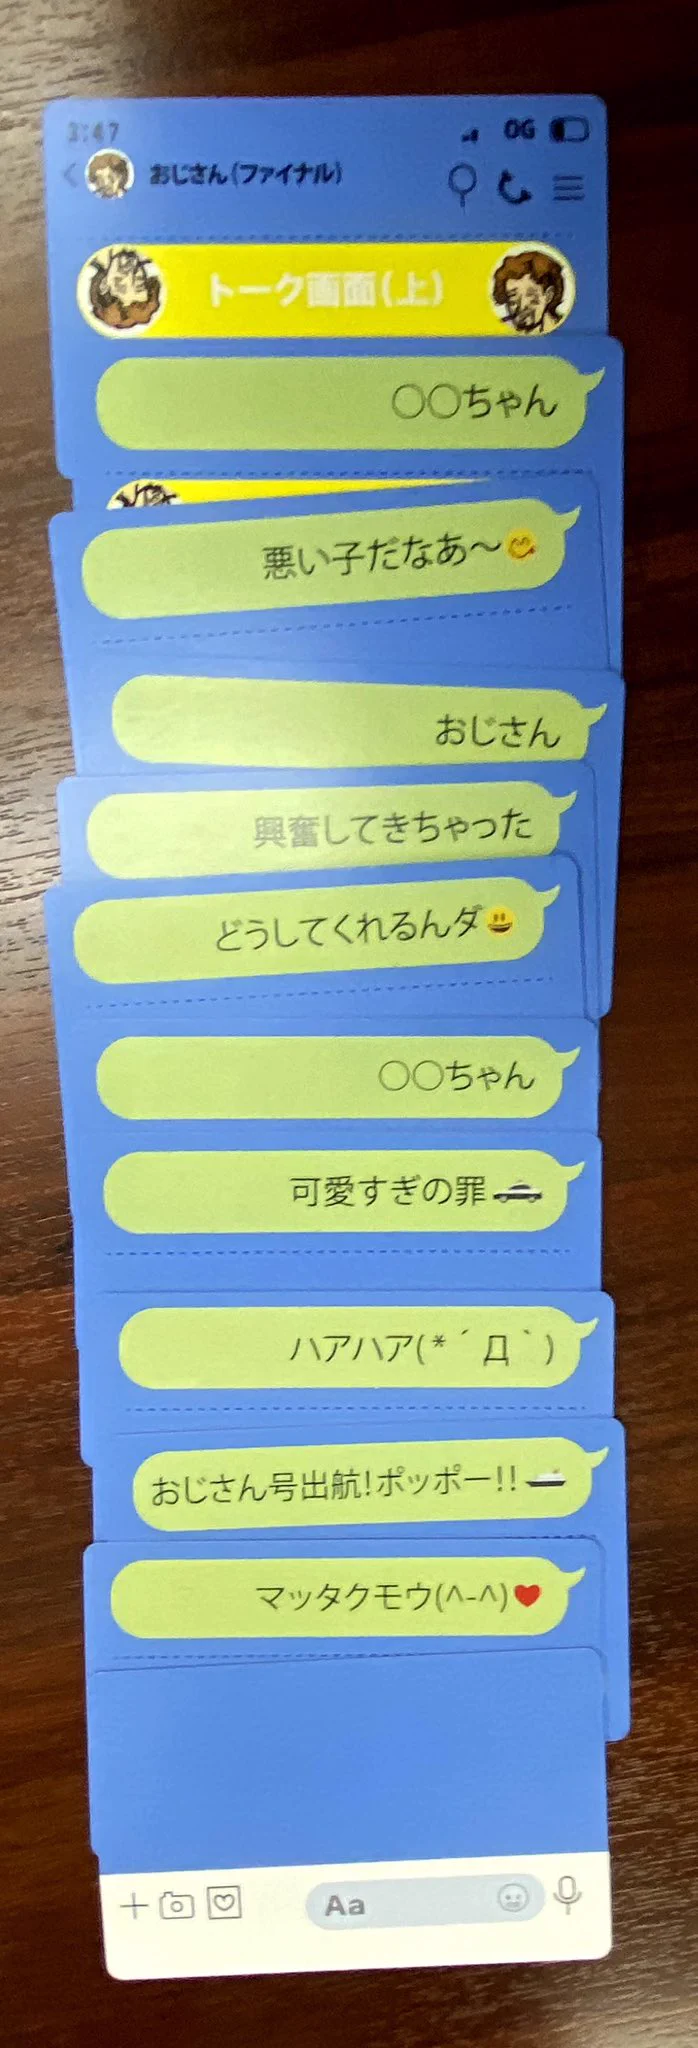 3:47 OG
おじさん(ファイナル)
トーク画面(上)
○○ちゃん
悪い子だなあ〜😋
おじさん
興奮してきちゃった
どうしてくれるんダ😃
○○ちゃん
可愛すぎの罪🚓
ハアハア(*´Д｀)
おじさん号出航!ポッポー!!🚢
マッタクモウ(^-^)❤
Aa